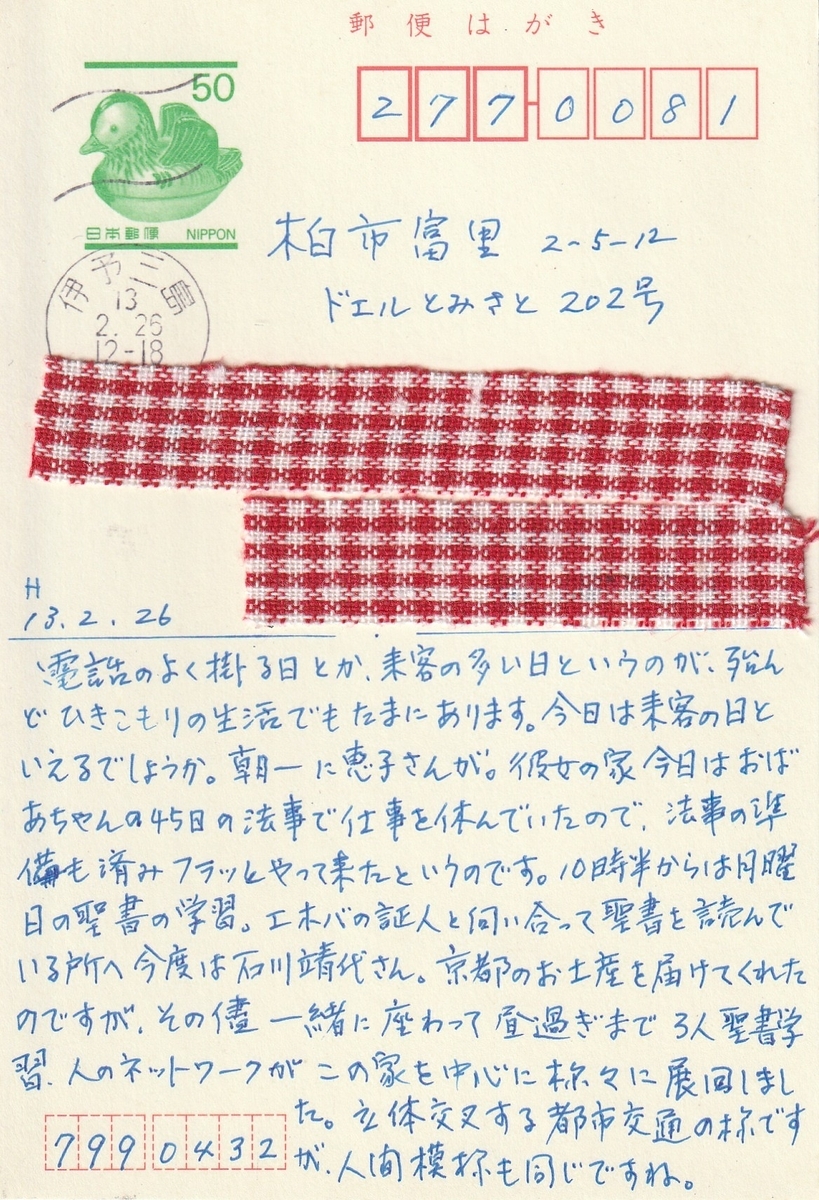 郵便はがき
50
日本郵便 NIPPON
277-0081
伊予三島
13
2.26
12-18
柏市富里 2-5-12
ドエルとみさと 202号
H
13.2.26
電話のよく掛る日とか、来客の多い日というのが、殆ん
どひきこもりの生活でもたまにあります。今日は来客の日と
いえるでしょうか。朝一に恵子さんが。彼女の家今日はおば
あちゃんの45日の法事で仕事を休んでいたので、法事の準
備も済みフラッとやって来たというのです。10時半からは月曜
日の聖書の学習。エホバの証人と向い合って聖書を読んで
いる所へ今度は石川靖代さん。京都のお土産を届けてくれた
のですが、その儘 一緒に座わって昼過ぎまで3人聖書学
習、人のネットワークがこの家を中心に様々に展回しまし
た。立体交叉する都市交通の様です
が、人間模様も同じですね。
7990432